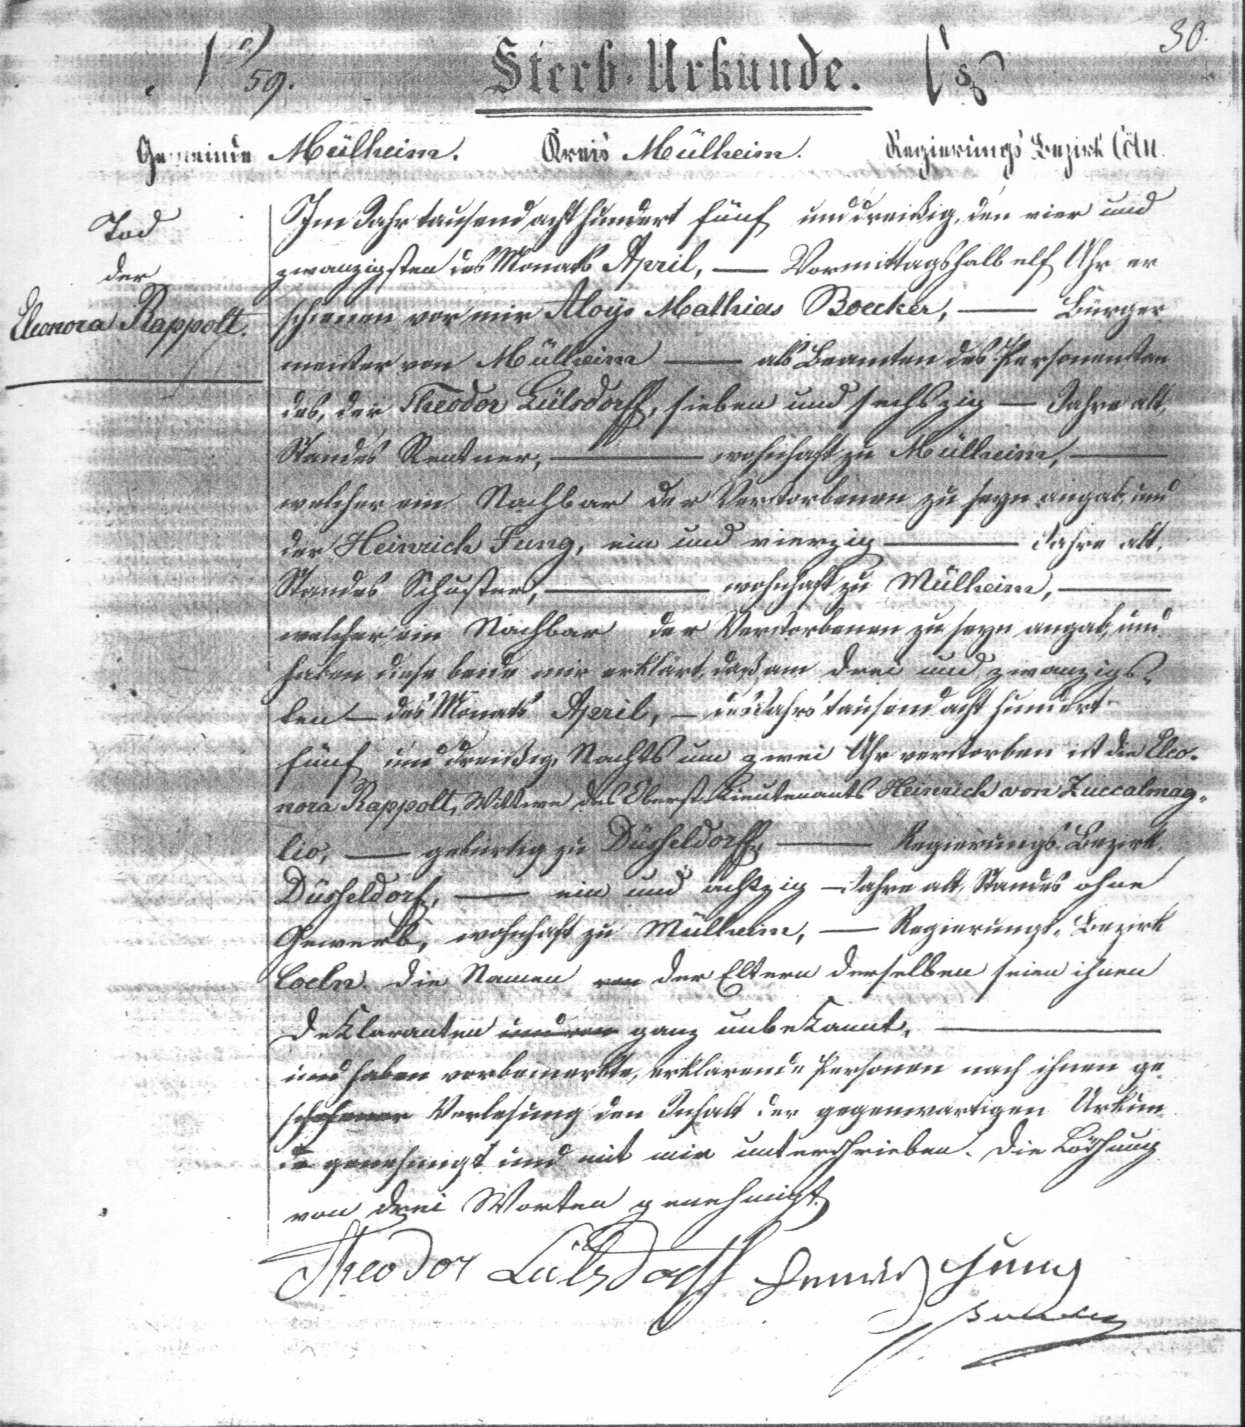 30.
59.
Sterb-Urkunde.
Gemeinde Mülheim. Kreis Mülheim. Regierungs Bezirk Cöln
Tod
der
Eleonora Rappolt.
Im Jahr tausend acht hundert fünf und dreißig, den vier und
zwanzigsten des Monats April, — Vormittags halb elf Uhr er
schienen vor mir Aloys Mathias Boecker, — Bürger
meister von Mülheim — als Beamten des Personenstan
des, der Theodor Lülsdorff, sieben und sechszig — Jahre alt,
Standes Rentner, — wohnhaft zu Mülheim, —
welcher ein Nachbar der Verstorbenen zu seyn angab, und
der Heinrich Jung, ein und vierzig — Jahre alt,
Standes Schuster, — wohnhaft zu Mülheim, —
welcher ein Nachbar der Verstorbenen zu seyn angab, und
haben diese beide mir erklärt, daß am drei und zwanzigs-
ten — des Monats April, — des Jahrs tausend acht hundert
fünf und dreißig, Nachts um zwei Uhr verstorben ist die Eleo-
nora Rappolt, Wittwe des Oberst Lieutenants Heinrich von Zuccalmag-
lio, — gebürtig zu Düsseldorff, — Regierungs-Bezirk
Düsseldorf, — ein und achtzig — Jahre alt, Standes ohne
Gewerb, wohnhaft zu Mülheim, — Regierungs-Bezirk
Coeln. Die Namen von der Eltern derselben seien ihnen
Deklaranten und von ganz unbekannt, —
und haben vorbemerkte, erklärende Personen nach ihnen ge
schehener Verlesung den Inhalt der gegenwärtigen Urkun
de genehmigt und mit mir unterschrieben. Die Löschung
von drei Worten genehmigt.
Theodor Lülsdorff Heinrich Jung
Boecker